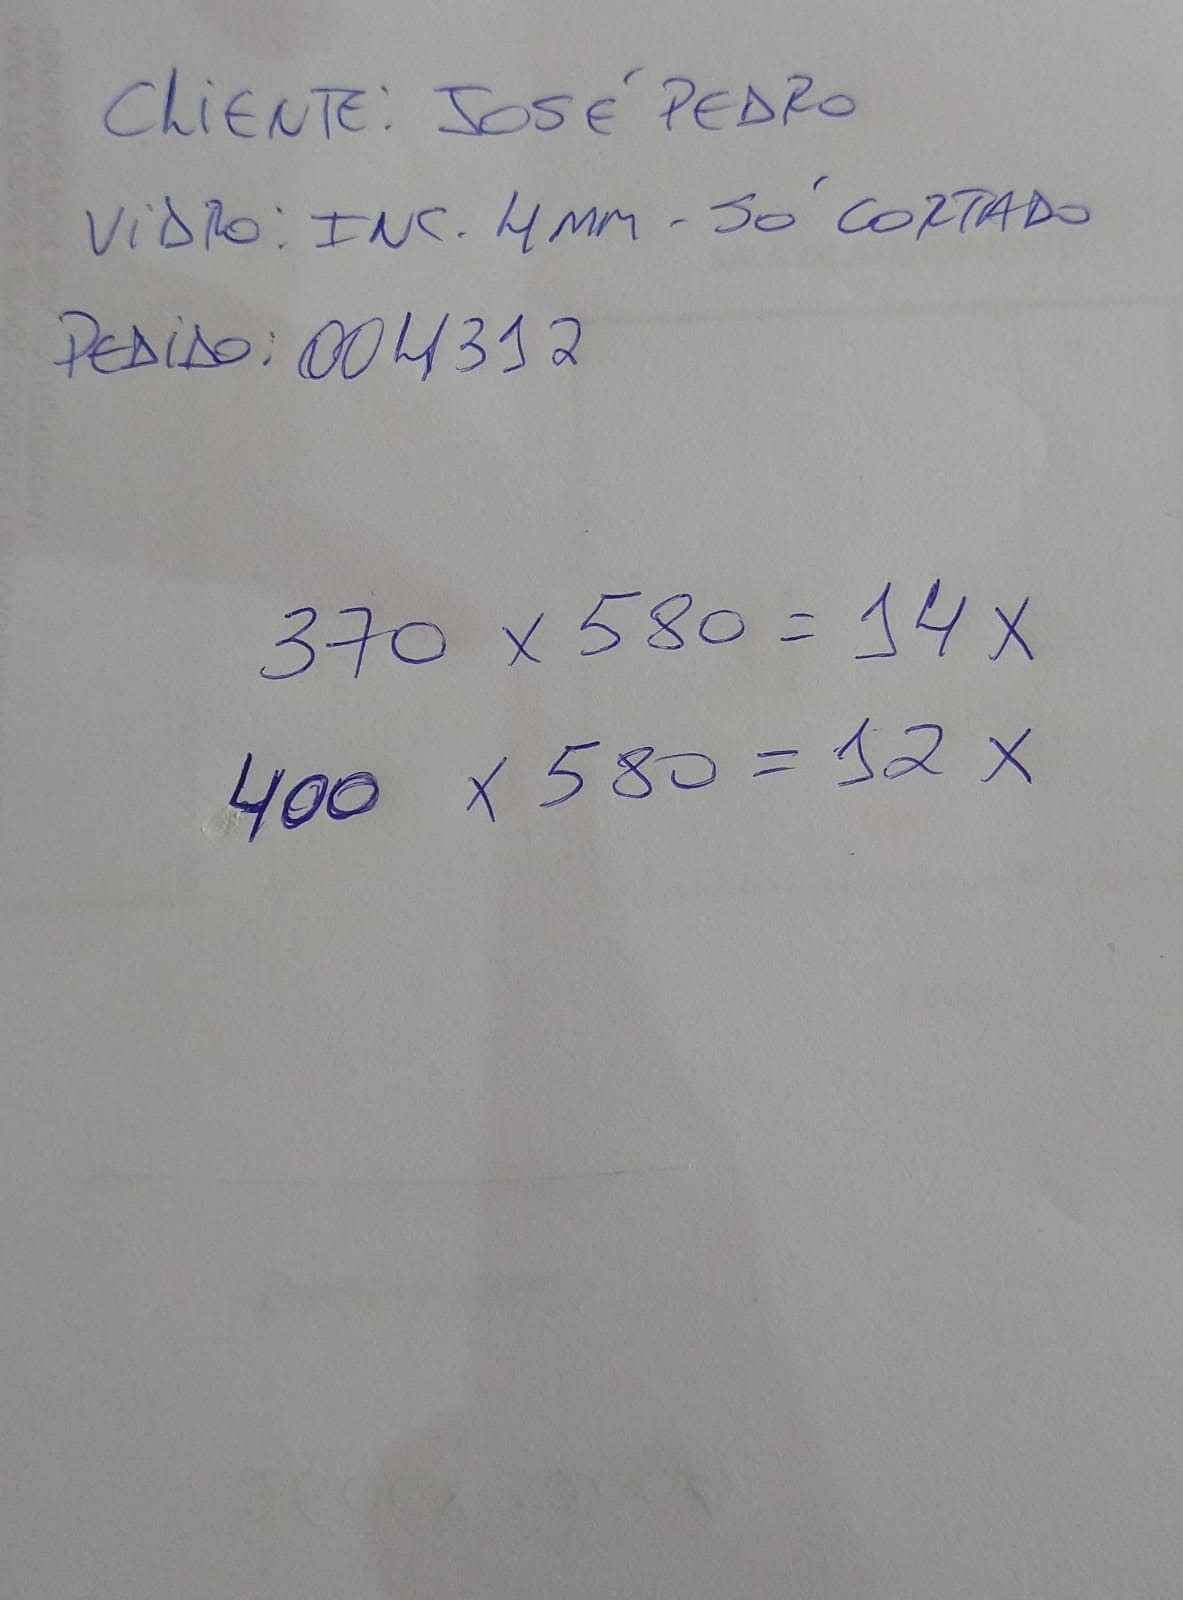 CLIENTE: JOSÉ PEDRO
VIDRO: INC. 4MM - SÓ CORTADO
PEDIDO: 004312
370 x 580 = 14 x
400 x 580 = 12 x